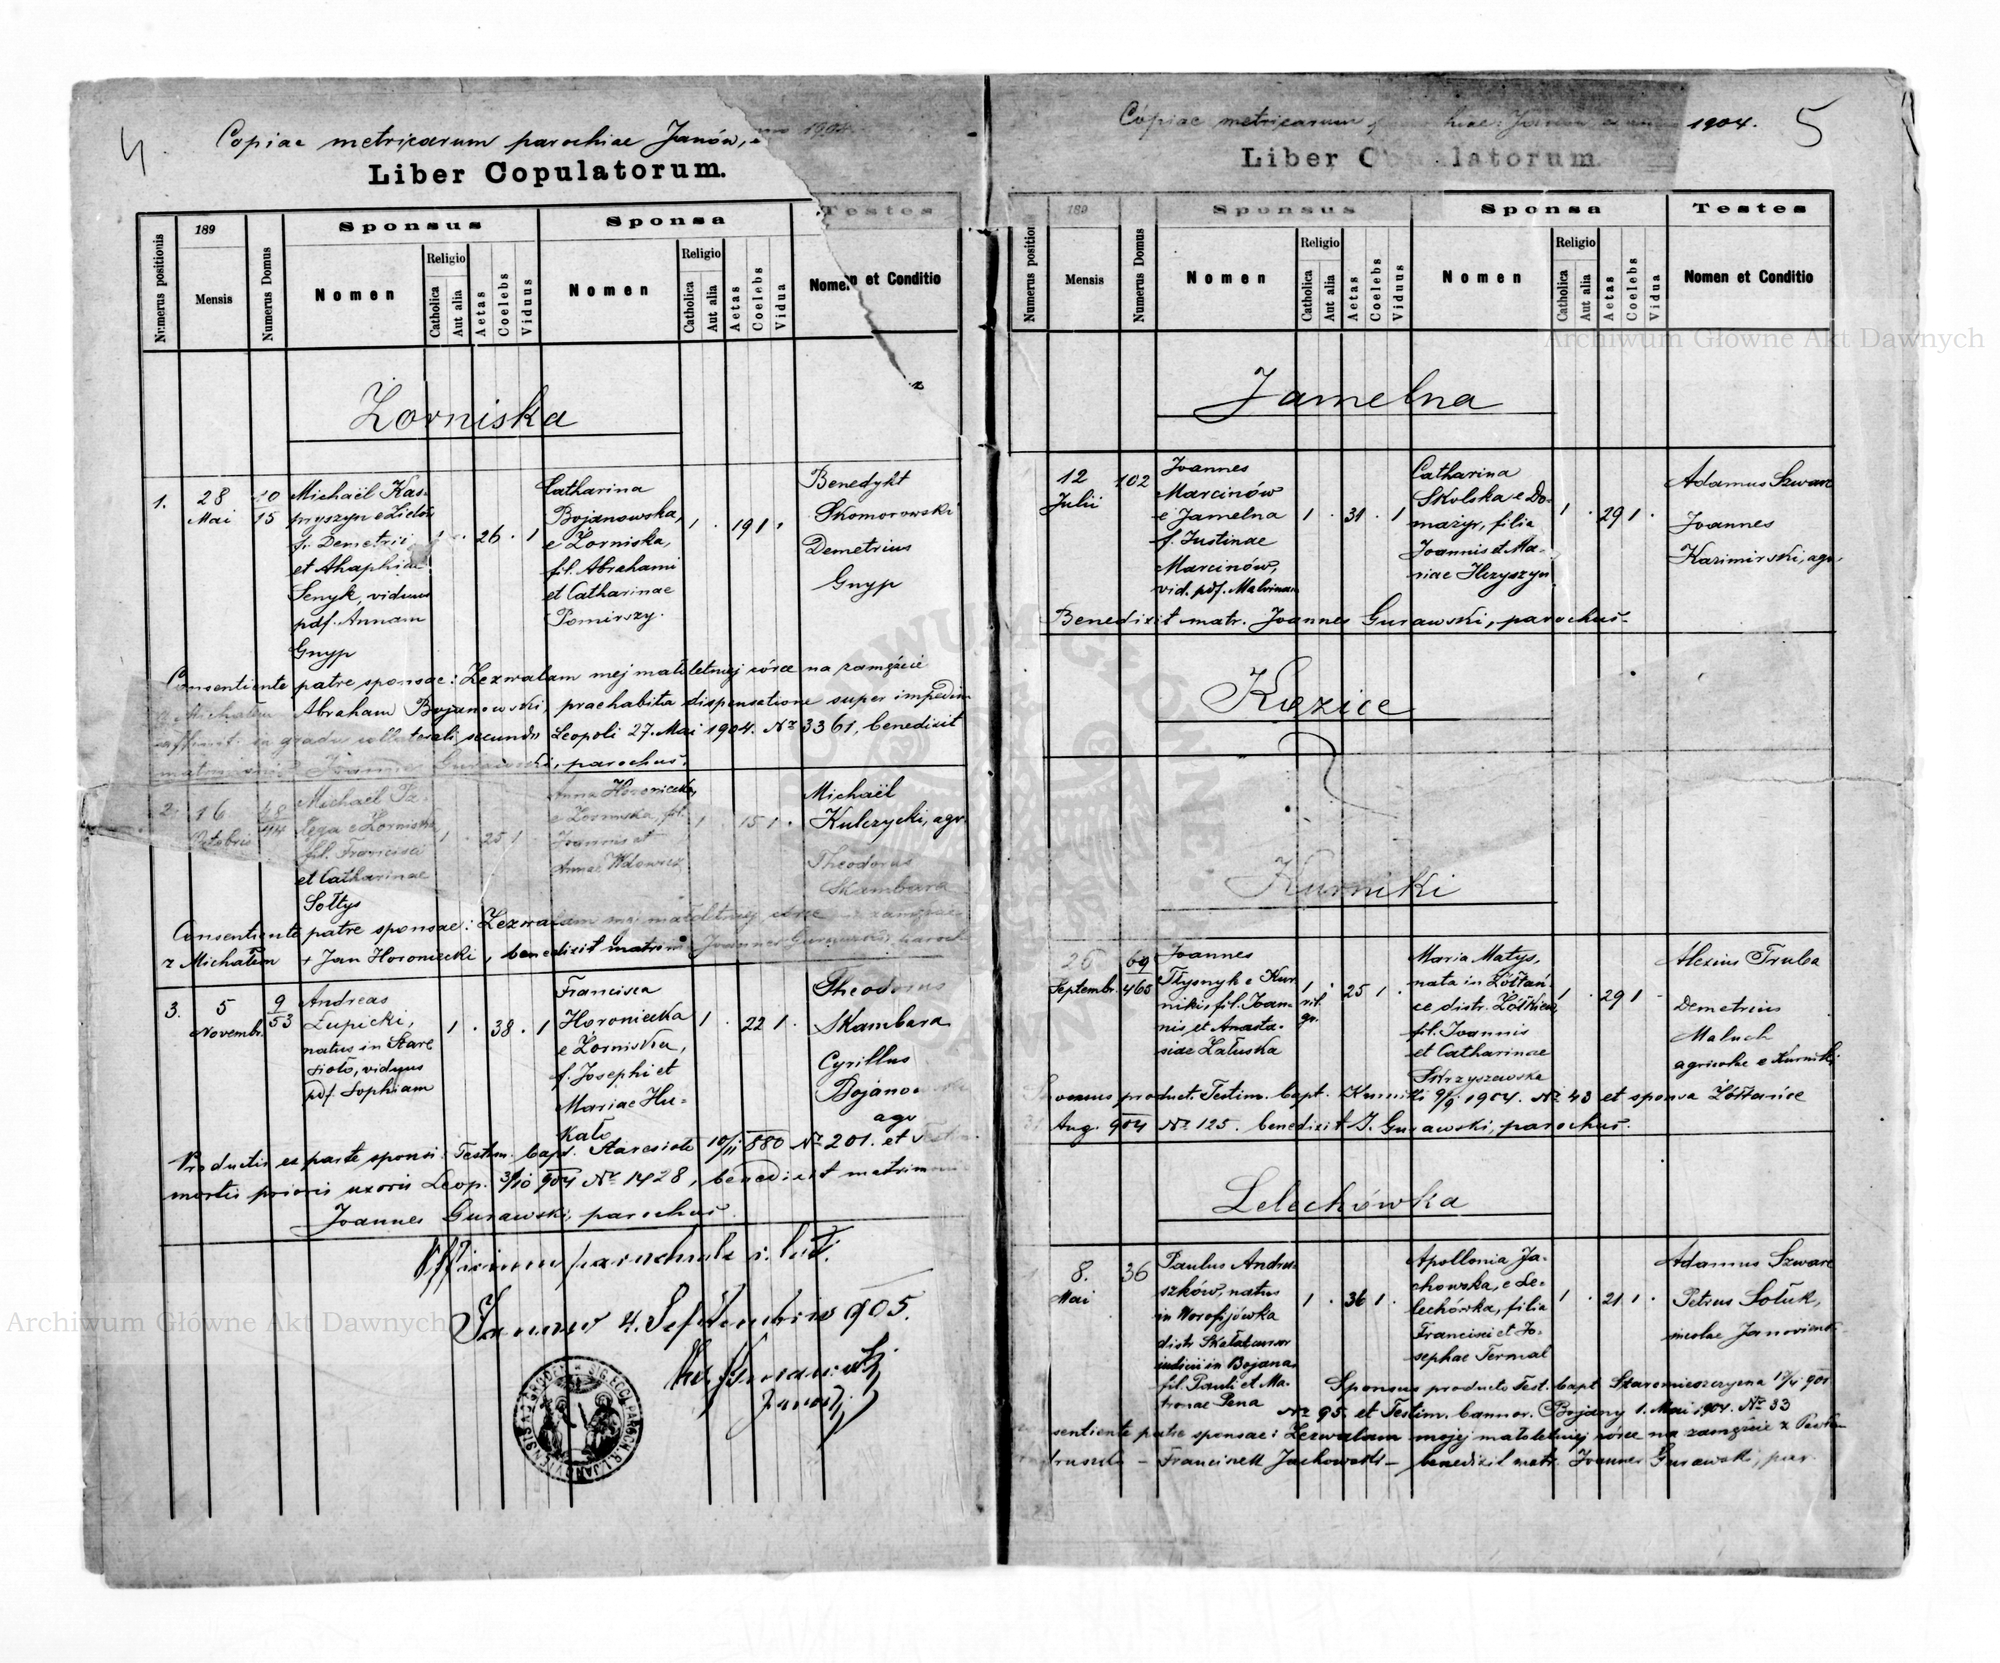 4.
Copiae metricarum parochiae Janów, anno 1904.
Liber Copulatorum.
Numerus positionis
189
Mensis
Numerus Domus
Sponsus
Nomen
Religio
Catholica
Aut alia
Aetas
Coelebs
Viduus
Sponsa
Nomen
Religio
Catholica
Aut alia
Aetas
Coelebs
Vidua
Testes
Nomen et Conditio
Zorniska
1.
28
Mai
15
Michaël Kas-
pryszyn e Zielów
f. Demetrii
et Ahaphiae
Senyk, viduus
pdf. Annam
Gnyp
1 . 26 . 1
Catharina
Bojanowska,
e Zorniska,
fil. Abrahami
et Catharinae
Pomirszy.
1 . 19 1 .
Benedykt
Skomorowski
Demetrius
Gnyp
Consentiente patre sponsae: Zezwalam mej małoletniej córce na zamęźcie
z Michałem Abraham Bojanowski, praehabita dispensatione super impedim
affinit. in gradu collaterali secundo Leopoli 27. Mai 1904. Nr 3361, benedixit
matrimonio Joannes Gurawski, parochus.
2.
16
Octobris
48
44
Michaël
e Zorniska
fil. Francisci
et Catharinae
Sołtys
1 . 25 1
Anna Horoniecka,
e Zorniska, fil.
Joannis et
Annae Wdowicz
1 . 15 1 .
Michaël
Kulczycki, agr.
Theodorus
Skambara
Consentiente patre sponsae: Zezwalam mej małoletniej córce na zamęźcie
z Michałem + Jan Horoniecki, benedixit matrim. Joannes Gurawski, paroch
3.
5
Novembr.
9
53
Andreas
Łupicki,
natus in Stare
sioło, viduus
pdf. Sophiam
1 . 38 . 1
Francisca
Horoniecka
e Zorniska,
f. Josephi et
Mariae Hu-
kało
1 . 22 1 .
Theodorus
Skambara
Cyrillus
Bojanowski
agr
Productis ex parte sponsi: Testim. bapt. Staresioło 10/II 880 Nr 201. et Testim.
mortis prioris uxoris Leop. 3/10 904 Nr 1428, benedixit matrimoni
Joannes Gurawski, parochus.
Officium parochiale r. lat.
Janow 4. Septembris 905.
5
Copiae metricarum parochiae Janów anno 1904.
Liber Copulatorum.
Numerus positionis
189
Mensis
Numerus Domus
Sponsus
Nomen
Religio
Catholica
Aut alia
Aetas
Coelebs
Viduus
Sponsa
Nomen
Religio
Catholica
Aut alia
Aetas
Coelebs
Vidua
Testes
Nomen et Conditio
Jamelna
12
Julii
102
Joannes
Marcinów
e Jamelna
f. Justinae
Marcinów,
vid. pdf. Malvinam
1 . 31 . 1
Catharina
Skolska e Do-
mażyr, filia
Joannis et Ma-
riae Hryszyn
1 . 29 1 .
Adamus Szwarc
Joannes
Kazimirski, agr.
Benedixit matr. Joannes Gurawski, parochus.
Kozice
Kurniki
26
Septembr.
69
465
Joannes
Tłysnyk e Kur-
nikis fil. Joan-
nis et Anasta-
siae Załuska
1 rit. gr. . 25 1 .
Maria Matys,
nata in Żółtań-
ce distr. Żółkiew,
fil. Joannis
et Catharinae
Skrzyszewska
1 . 29 1 .
Alexius Truba
Demetrius
Maluch
agricolae e Kurniki
Sponsus product. Testim. bapt. Kurniki 9/9 1904. Nr 43 et sponsa Żółtańce
Aug. 904 Nr 125. benedixit J. Gurawski, parochus.
Lelechówka
8.
Mai
36
Paulus Andru-
szków, natus
in Worobijówka
distr Skałat
in Bojana
fil. Pauli et Ma-
tronae Pena
1 . 36 1 .
Apollonia Ja-
chowska, e Le-
lechówka, filia
Francisci et Jo-
sephae Termal
1 . 21 1 .
Adamus Szwarc
Petrus Sołuk,
incolae Janovienses
Sponsus producto Test. bapt
Nr 95. et Testim. bannor. Bojany 1. Mai 1904. Nr 33
sentiente patre sponsae: Zezwalam mojej małoletniej córce na zamęźcie z Pawłem
Franciszek Jachowski – benedixit matr. Joannes Gurawski, par.
Archiwum Główne Akt Dawnych
Archiwum Główne Akt Dawnych